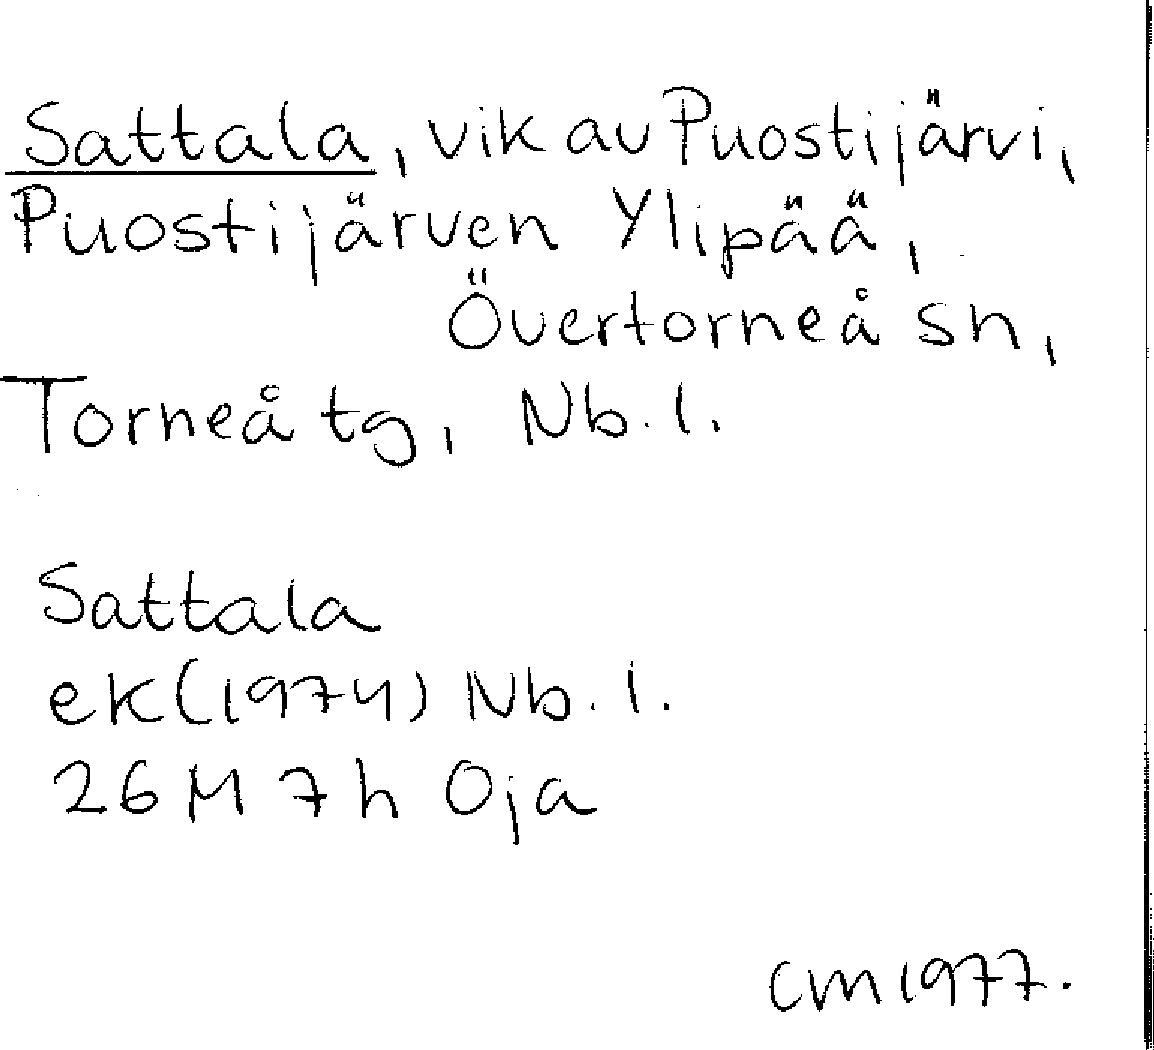 Sattala, vik av Puostijärvi,
Puostijärven Ylipää,
Övertorneå sn,
Torneå tg, Nb. l.
Sattala
ek (1974) Nb. l.
26 M 7 h Oja
CM 1977.